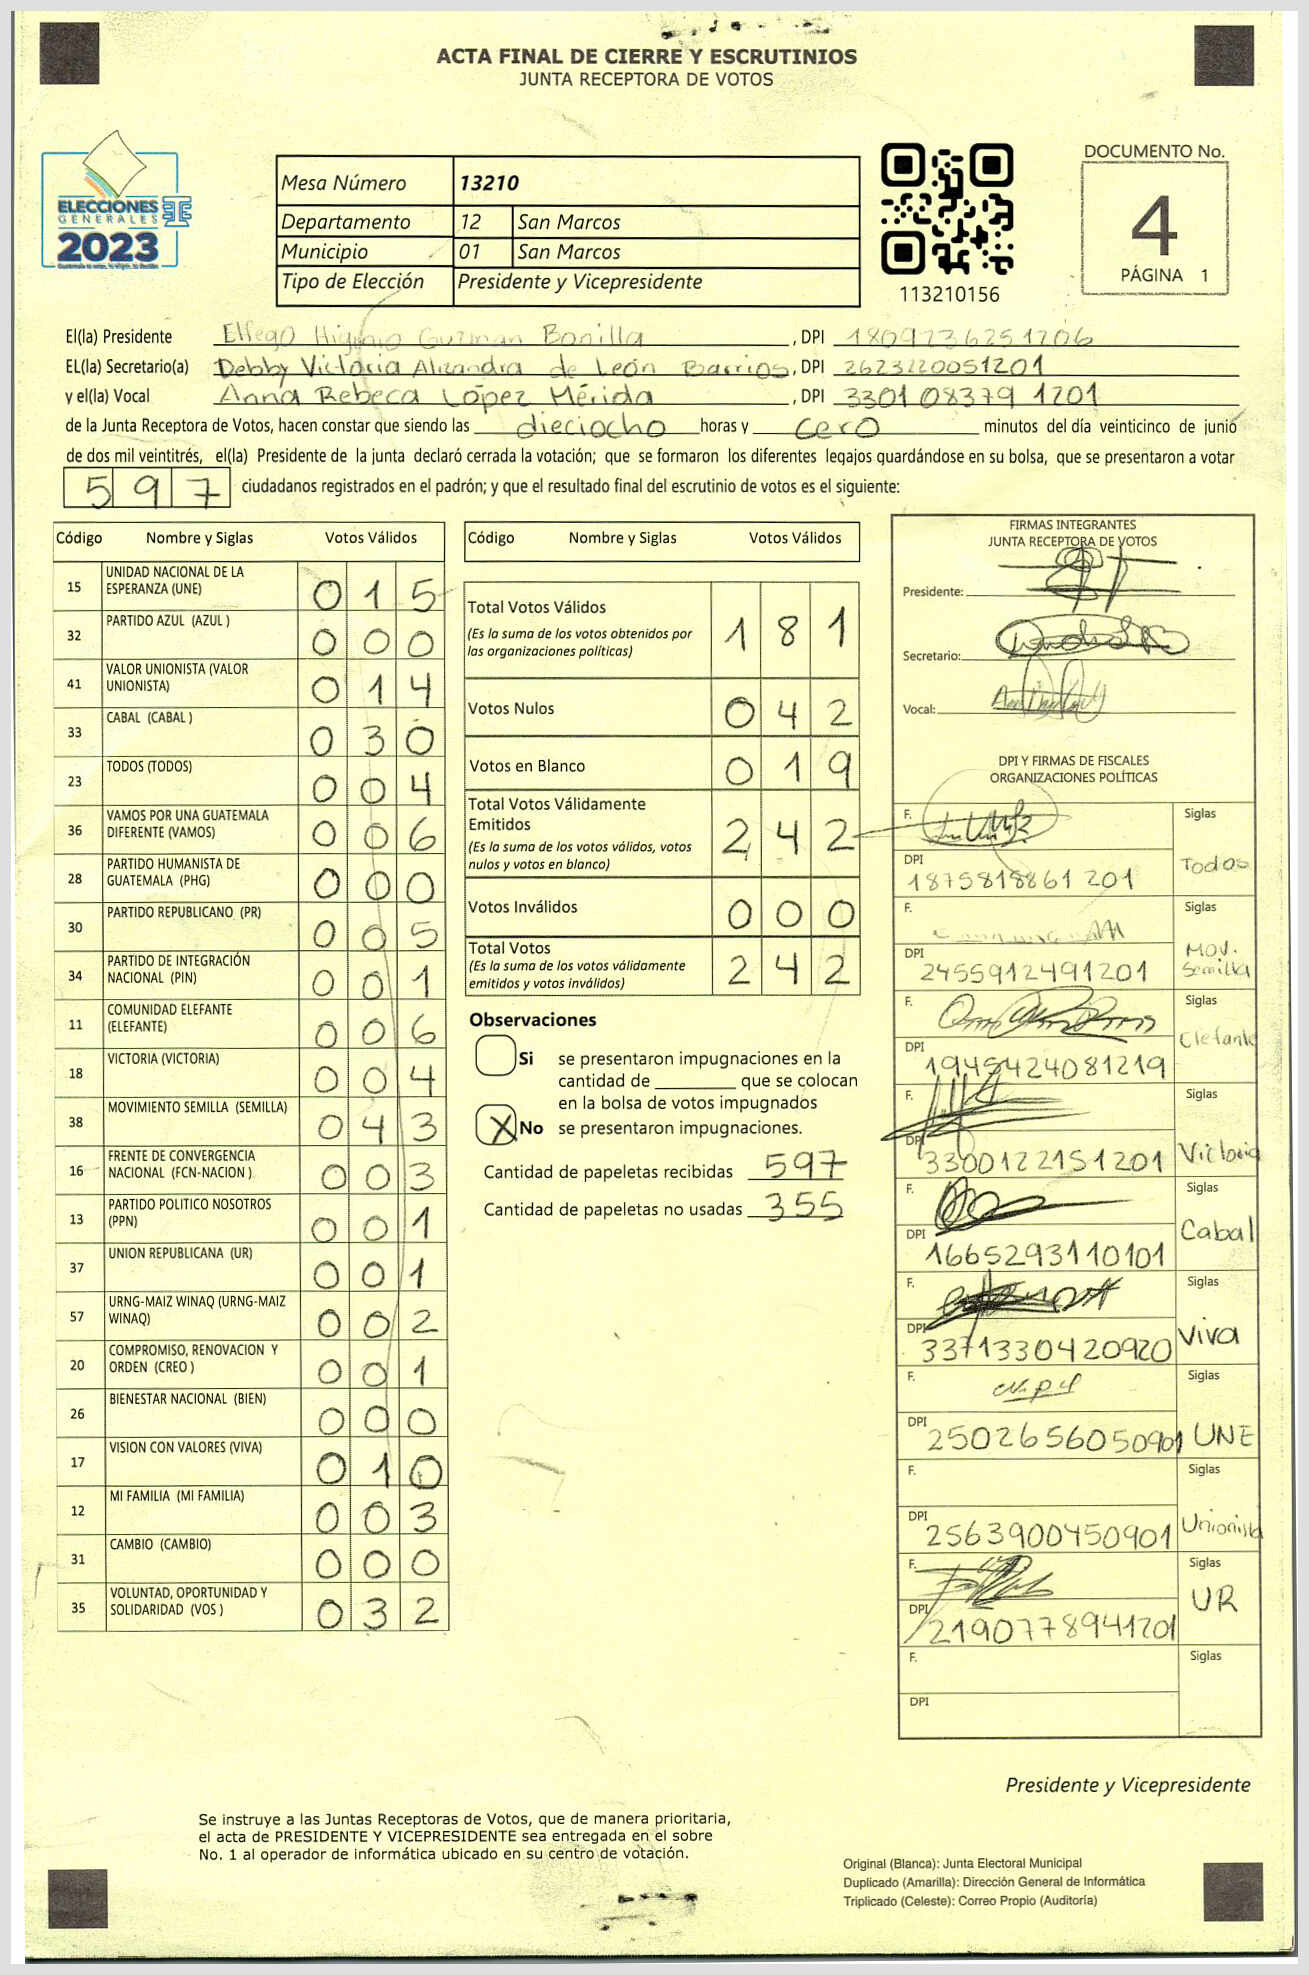 ACTA FINAL DE CIERRE Y ESCRUTINIOS
JUNTA RECEPTORA DE VOTOS
ELECCIONES
GENERALES
2023
Mesa Número 13210
Departamento 12 San Marcos
Municipio 01 San Marcos
Tipo de Elección Presidente y Vicepresidente
113210156
DOCUMENTO No.
4
PÁGINA 1
El(la) Presidente Elfego Higinio Guzman Bonilla, DPI 1809236251206
EL(la) Secretario(a) Debby Victoria Alizandra de León Barrios, DPI 2623220051201
y el(la) Vocal Anna Rebeca López Mérida, DPI 3301 08379 1201
de la Junta Receptora de Votos, hacen constar que siendo las dieciocho horas y cero minutos del día veinticinco de junio
de dos mil veintitrés, el(la) Presidente de la junta declaró cerrada la votación; que se formaron los diferentes legajos quardándose en su bolsa, que se presentaron a votar
597 ciudadanos registrados en el padrón; y que el resultado final del escrutinio de votos es el siguiente:
Código Nombre y Siglas Votos Válidos
15 UNIDAD NACIONAL DE LA ESPERANZA (UNE) 015
32 PARTIDO AZUL (AZUL ) 000
41 VALOR UNIONISTA (VALOR UNIONISTA) 014
33 CABAL (CABAL ) 030
23 TODOS (TODOS) 004
36 VAMOS POR UNA GUATEMALA DIFERENTE (VAMOS) 006
28 PARTIDO HUMANISTA DE GUATEMALA (PHG) 000
30 PARTIDO REPUBLICANO (PR) 005
34 PARTIDO DE INTEGRACIÓN NACIONAL (PIN) 001
11 COMUNIDAD ELEFANTE (ELEFANTE) 006
18 VICTORIA (VICTORIA) 004
38 MOVIMIENTO SEMILLA (SEMILLA) 043
16 FRENTE DE CONVERGENCIA NACIONAL (FCN-NACION ) 003
13 PARTIDO POLITICO NOSOTROS (PPN) 001
37 UNION REPUBLICANA (UR) 001
57 URNG-MAIZ WINAQ (URNG-MAIZ WINAQ) 002
20 COMPROMISO, RENOVACION Y ORDEN (CREO ) 001
26 BIENESTAR NACIONAL (BIEN) 000
17 VISION CON VALORES (VIVA) 010
12 MI FAMILIA (MI FAMILIA) 003
31 CAMBIO (CAMBIO) 000
35 VOLUNTAD, OPORTUNIDAD Y SOLIDARIDAD (VOS ) 032
Código Nombre y Siglas Votos Válidos
Total Votos Válidos 181
(Es la suma de los votos obtenidos por
las organizaciones políticas)
Votos Nulos 042
Votos en Blanco 019
Total Votos Válidamente
Emitidos 242
(Es la suma de los votos válidos, votos
nulos y votos en blanco)
Votos Inválidos 000
Total Votos 242
(Es la suma de los votos válidamente
emitidos y votos inválidos)
Observaciones
Si se presentaron impugnaciones en la
cantidad de ________ que se colocan
en la bolsa de votos impugnados
X No se presentaron impugnaciones.
Cantidad de papeletas recibidas 597
Cantidad de papeletas no usadas 355
FIRMAS INTEGRANTES
JUNTA RECEPTORA DE VOTOS
Presidente:
Secretario:
Vocal:
DPI Y FIRMAS DE FISCALES
ORGANIZACIONES POLÍTICAS
F. Siglas
DPI 1875818861 201 Todos
F. Siglas
DPI 2455912491201 Mov. Semilla
F. Siglas
DPI 1945424081219 Elefante
F. Siglas
DPI 3300122151201 Victoria
F. Siglas
DPI 1665293110101 Cabal
F. Siglas
DPI 3371330420920 Viva
F. Siglas
DPI 2502656050901 UNE
F. Siglas
DPI 2563900450901 Unionista
F. Siglas
DPI 2190778941201 UR
F. Siglas
DPI
Presidente y Vicepresidente
Se instruye a las Juntas Receptoras de Votos, que de manera prioritaria,
el acta de PRESIDENTE Y VICEPRESIDENTE sea entregada en el sobre
No. 1 al operador de informática ubicado en su centro de votación.
Original (Blanca): Junta Electoral Municipal
Duplicado (Amarilla): Dirección General de Informática
Triplicado (Celeste): Correo Propio (Auditoría)